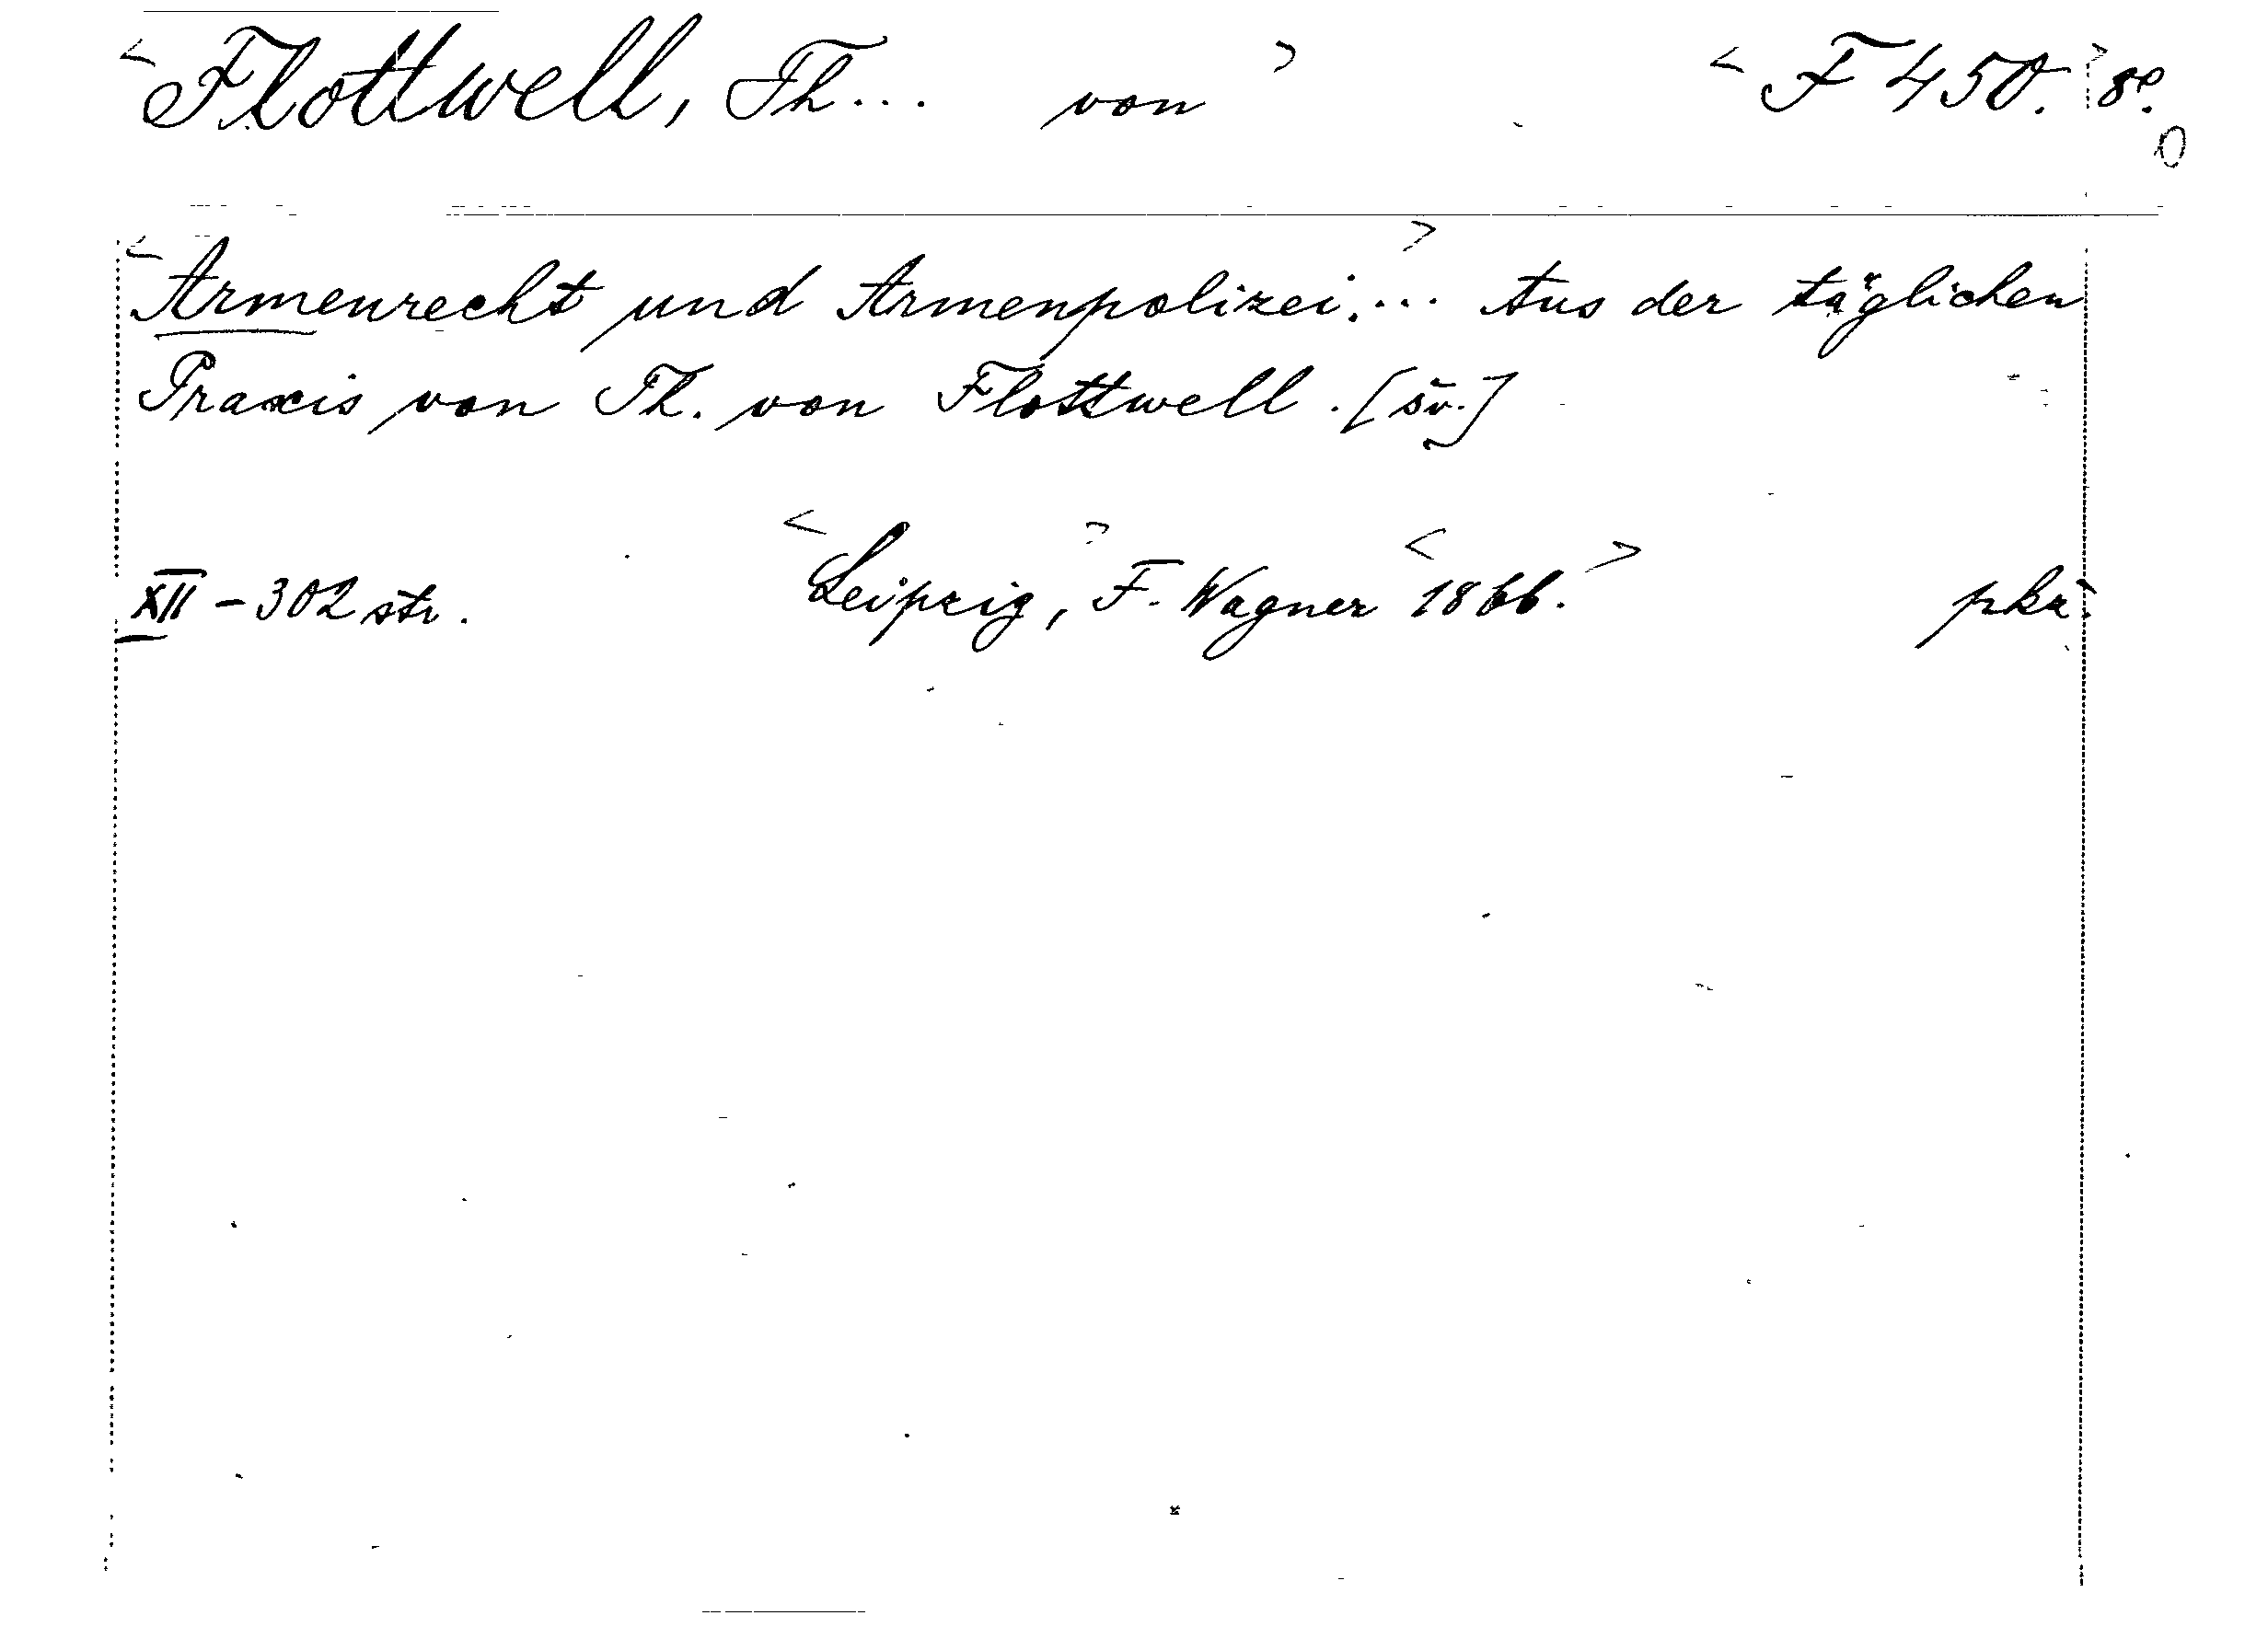 <Flottwell, Th... von> <F 450.> 8º.
<Armenrecht und Armenpolizei.>... Aus der täglichen
Praxis von Th. von Flottwell. [sv.]
XII - 302 str. <Leipzig,> F. Wagner <1866.>